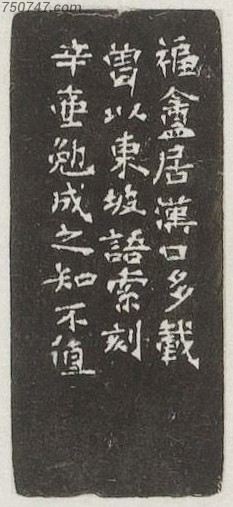 750747.com
褔盦居漢口多載
曽以東坡語索刻
辛壷勉成之知不值